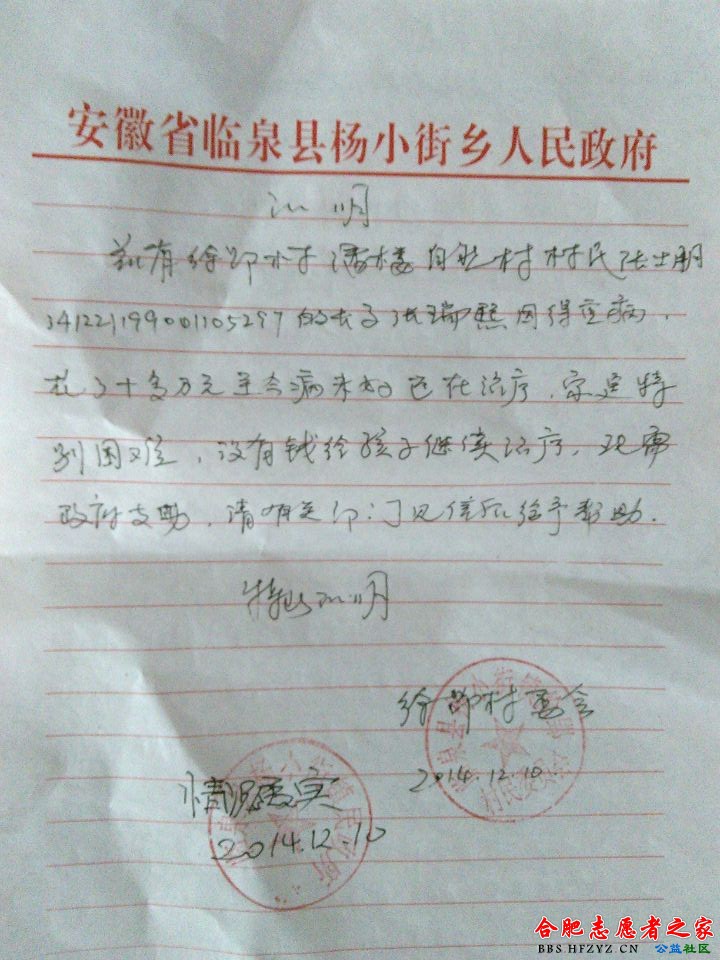 安徽省临泉县杨小街乡人民政府
证明
兹有徐郢村潘楼自然村村民张士明
341221199001105297的长子张瑞熙因得重病,
花了十多万元至今病未好还在治疗,家庭特
别困难,没有钱给孩子继续治疗,现需
政府支助,请有关部门见信后给予帮助.
特此证明
徐郢村委会
2014.12.10
村民委员会
情况属实
2014.12.10
民政所
合肥志愿者之家
BBS.HFZYZ.CN 公益社区